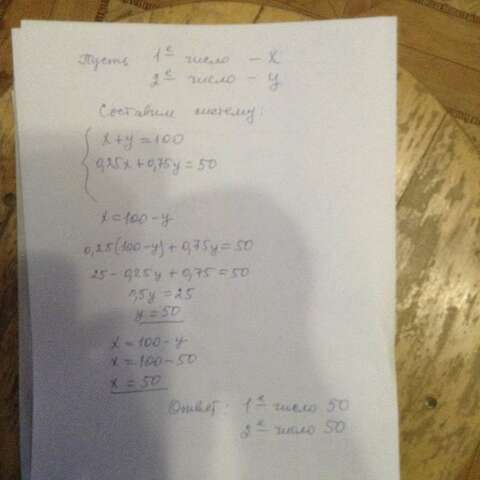 Пусть 1е число - x
2е число - y
Составим систему:
x+y=100
0,25x+0,75y=50
x=100-y
0,25(100-y)+0,75y=50
25-0,25y+0,75=50
0,5y=25
y=50
x=100-y
x=100-50
x=50
Ответ: 1е число 50
2е число 50